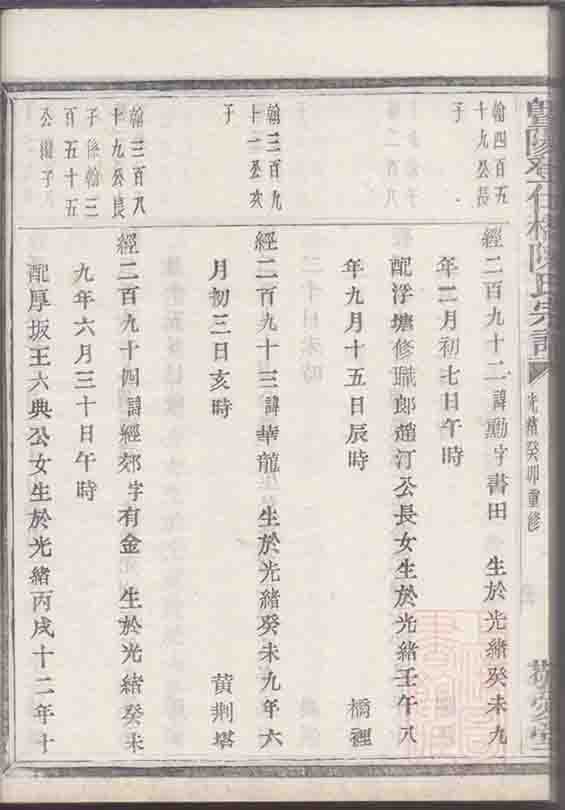 暨陽 陳氏宗譜
光緒癸卯重修
翰四百五
十九公長
子
經二百九十二諱勳字書田 生於光緒癸未九
年二月初七日午時
配浮塘修職郎趙汀公長女生於光緒壬午八
年九月十五日辰時 橋裡
翰三百九
十一公次
子
經二百九十三諱華龍 生於光緒癸未九年六
月初三日亥時 黃荆塔
翰三百八
十九公良
子係翰三
百五十五
公繼子
經二百九十四諱經郊字有金 生於光緒癸未
九年六月三十日午時
配厚坂王六典公女生於光緒丙戌十二年十